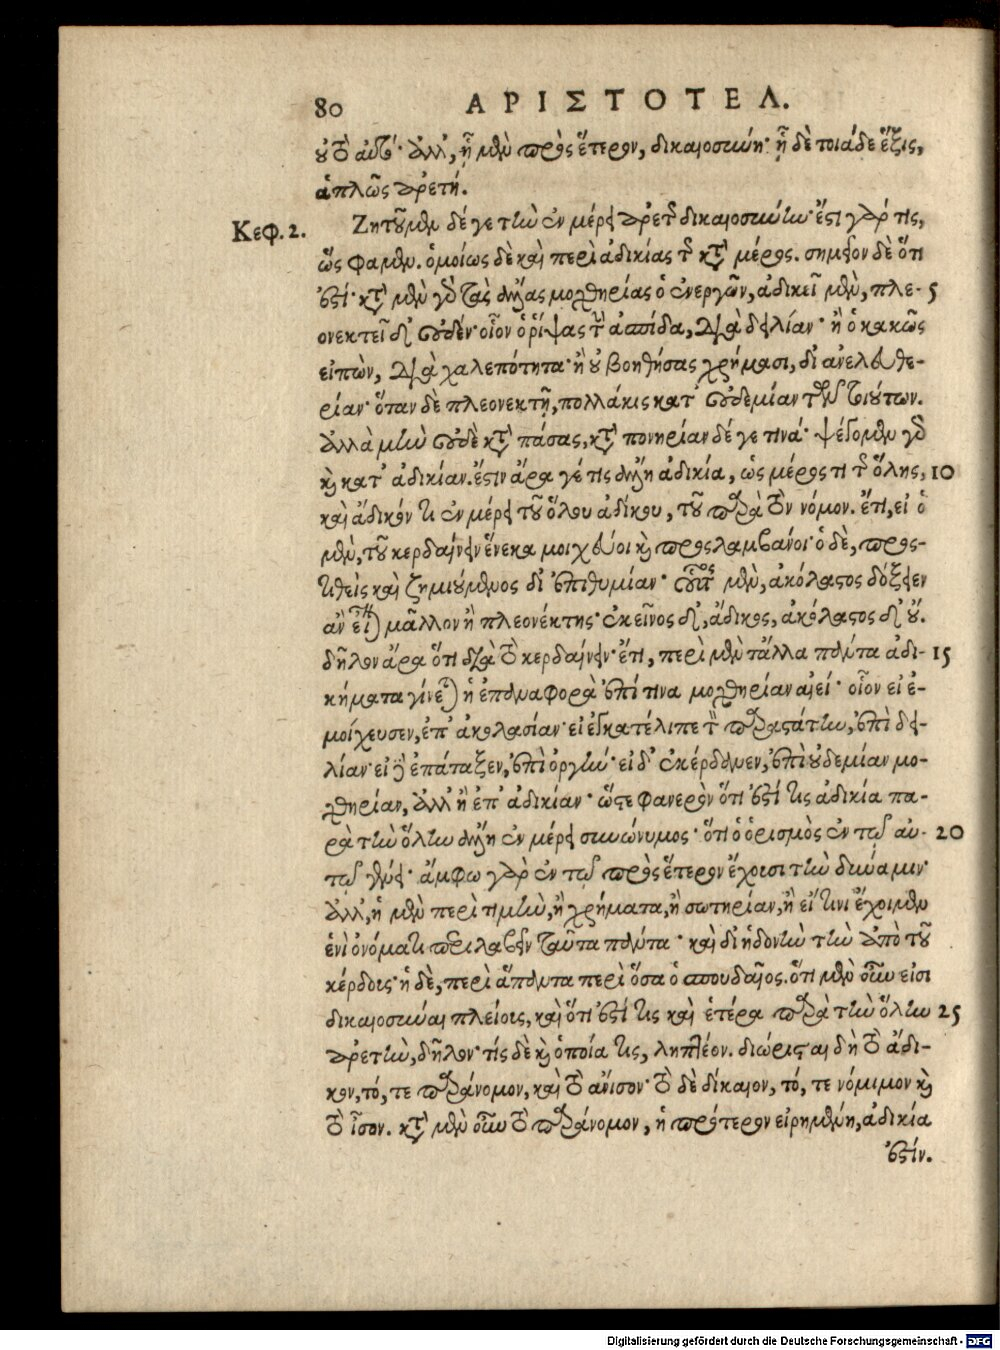 80 ΑΡΙΣΤΟΤΕΛ.
οὐ τὸ αὐτό· ἀλλ᾽, ᾗ μὲν πρὸς ἕτερον, δικαιοσύνη· ᾗ δὲ τοιάδε ἕξις,
ἁπλῶς ἀρετή.
Κεφ. 2. Ζητοῦμεν δέ γε τὴν ἐν μέρει ἀρετῆς δικαιοσύνην· ἔστι γάρ τις,
ὥς φαμεν. ὁμοίως δὲ καὶ περὶ ἀδικίας τῆς κατὰ μέρος. σημεῖον δὲ ὅτι
ἐστί· κατὰ μὲν γὰρ τὰς ἄλλας μοχθηρίας ὁ ἐνεργῶν, ἀδικεῖ μὲν, πλε- 5
ονεκτεῖ δ᾽ οὐδέν· οἷον ὁ ῥίψας τὴν ἀσπίδα, διὰ δειλίαν· ἢ ὁ κακῶς
εἰπὼν, διὰ χαλεπότητα· ἢ οὐ βοηθήσας χρήμασι, δι᾽ ἀνελευθε-
ρίαν· ὅταν δὲ πλεονεκτῇ, πολλάκις κατ᾽ οὐδεμίαν τῶν τοιούτων.
ἀλλὰ μὴν οὐδὲ κατὰ πάσας, κατὰ πονηρίαν δέ γε τινά· ψέγομεν γὰρ
καὶ κατ᾽ ἀδικίαν. ἔστιν ἄρα γέ τις ἄλλη ἀδικία, ὡς μέρος τι τῆς ὅλης, 10
καὶ ἄδικόν τι ἐν μέρει τοῦ ὅλου ἀδίκου, τοῦ παρὰ τὸν νόμον. ἔτι, εἰ ὁ
μὲν, τοῦ κερδαίνειν ἕνεκα μοιχεύοι καὶ προσλαμβάνοι· ὁ δὲ, προσ-
τιθεὶς καὶ ζημιούμενος δι᾽ ἐπιθυμίαν· οὗτος μὲν, ἀκόλαστος δόξειεν
ἂν εἶναι μᾶλλον ἢ πλεονέκτης· ἐκεῖνος δ᾽, ἄδικος, ἀκόλαστος δ᾽ οὔ.
δῆλον ἄρα ὅτι διὰ τὸ κερδαίνειν· ἔτι, περὶ μὲν τἄλλα πάντα ἀδι- 15
κήματα γίνεται ἡ ἐπαναφορὰ ἐπί τινα μοχθηρίαν αἰεί· οἷον εἰ ἐ-
μοίχευσεν, ἐπ᾽ ἀκολασίαν· εἰ ἐγκατέλιπε τὸν παραστάτην, ἐπὶ δει-
λίαν· εἰ ἐπάταξεν, ἐπὶ ὀργήν· εἰ δ᾽ ἐκέρδανεν, ἐπὶ οὐδεμίαν μο-
χθηρίαν, ἀλλ᾽ ἢ ἐπ᾽ ἀδικίαν· ὥστε φανερὸν ὅτι ἐστί τις ἀδικία πα-
ρὰ τὴν ὅλην ἄλλη ἐν μέρει συνώνυμος· ὅτι ὁ ὁρισμὸς ἐν τῷ αὐ- 20
τῷ γένει· ἄμφω γὰρ ἐν τῷ πρὸς ἕτερον ἔχουσι τὴν δύναμιν·
ἀλλ᾽, ἡ μὲν περὶ τιμὴν, ἢ χρήματα, ἢ σωτηρίαν, ἢ εἴ τινι ἔχοιμεν
ἑνὶ ὀνόματι περιλαβεῖν ταῦτα πάντα· καὶ δι᾽ ἡδονὴν τὴν ἀπὸ τοῦ
κέρδους· ἡ δὲ, περὶ ἅπαντα περὶ ὅσα ὁ σπουδαῖος. ὅτι μὲν οὖν εἰσι
δικαιοσύναι πλείους, καὶ ὅτι ἐστί τις καὶ ἑτέρα παρὰ τὴν ὅλην 25
ἀρετὴν, δῆλον· τίς δὲ καὶ ὁποία τις, ληπτέον. διώρισται δὴ τὸ ἄδι-
κον, τό, τε παράνομον, καὶ τὸ ἄνισον· τὸ δὲ δίκαιον, τό, τε νόμιμον καὶ
τὸ ἴσον. κατὰ μὲν οὖν τὸ παράνομον, ἡ πρότερον εἰρημένη, ἀδικία
ἐστίν.
Digitalisierung gefördert durch die Deutsche Forschungsgemeinschaft - DFG